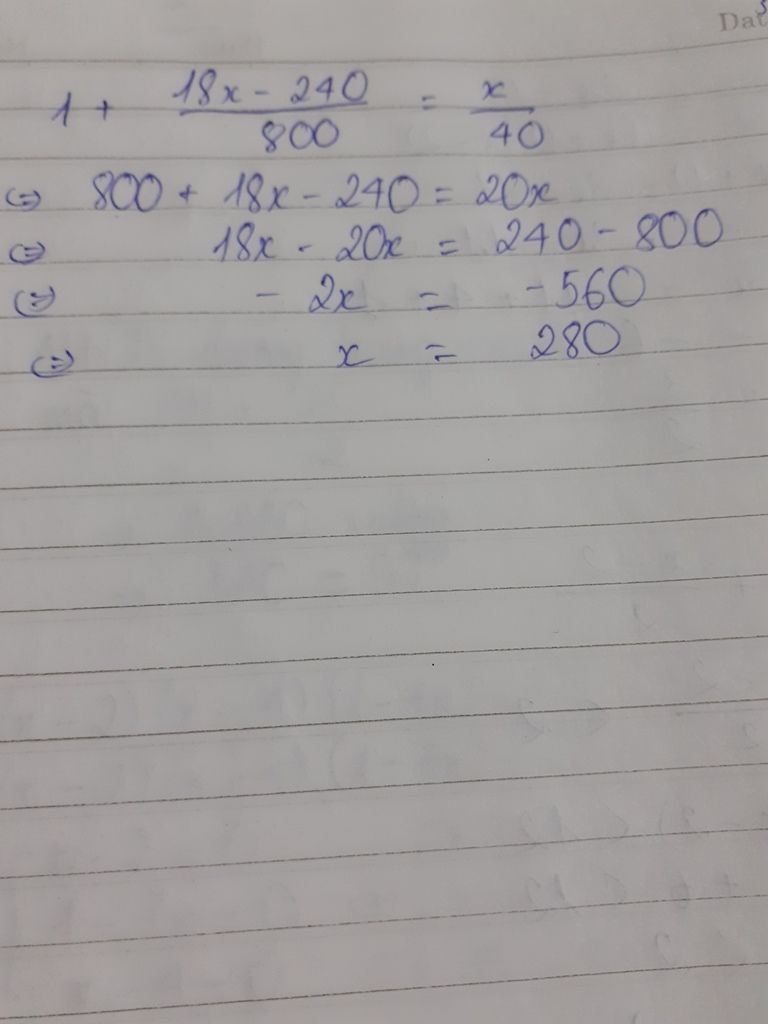 Dat
1 + (18x - 240)/800 = x/40
⇔ 800 + 18x - 240 = 20x
⇔ 18x - 20x = 240 - 800
⇔ - 2x = -560
⇔ x = 280